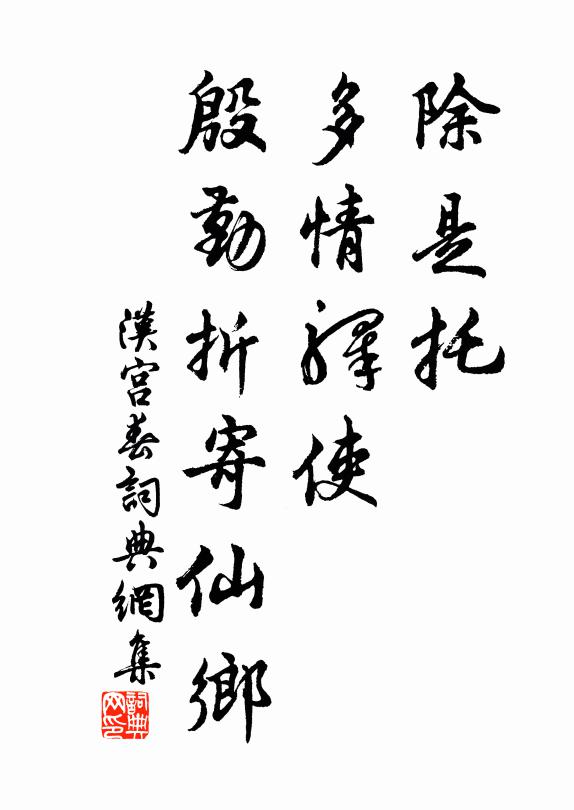 除是托
多情驛使
殷勤折寄仙鄉
漢宮春詞典網集
詞典网印